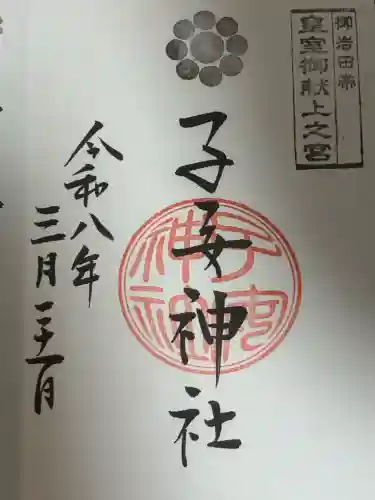 御岩田帯
皇室御献上之宮
子安神社
子安神社
令和八年
三月二十一日